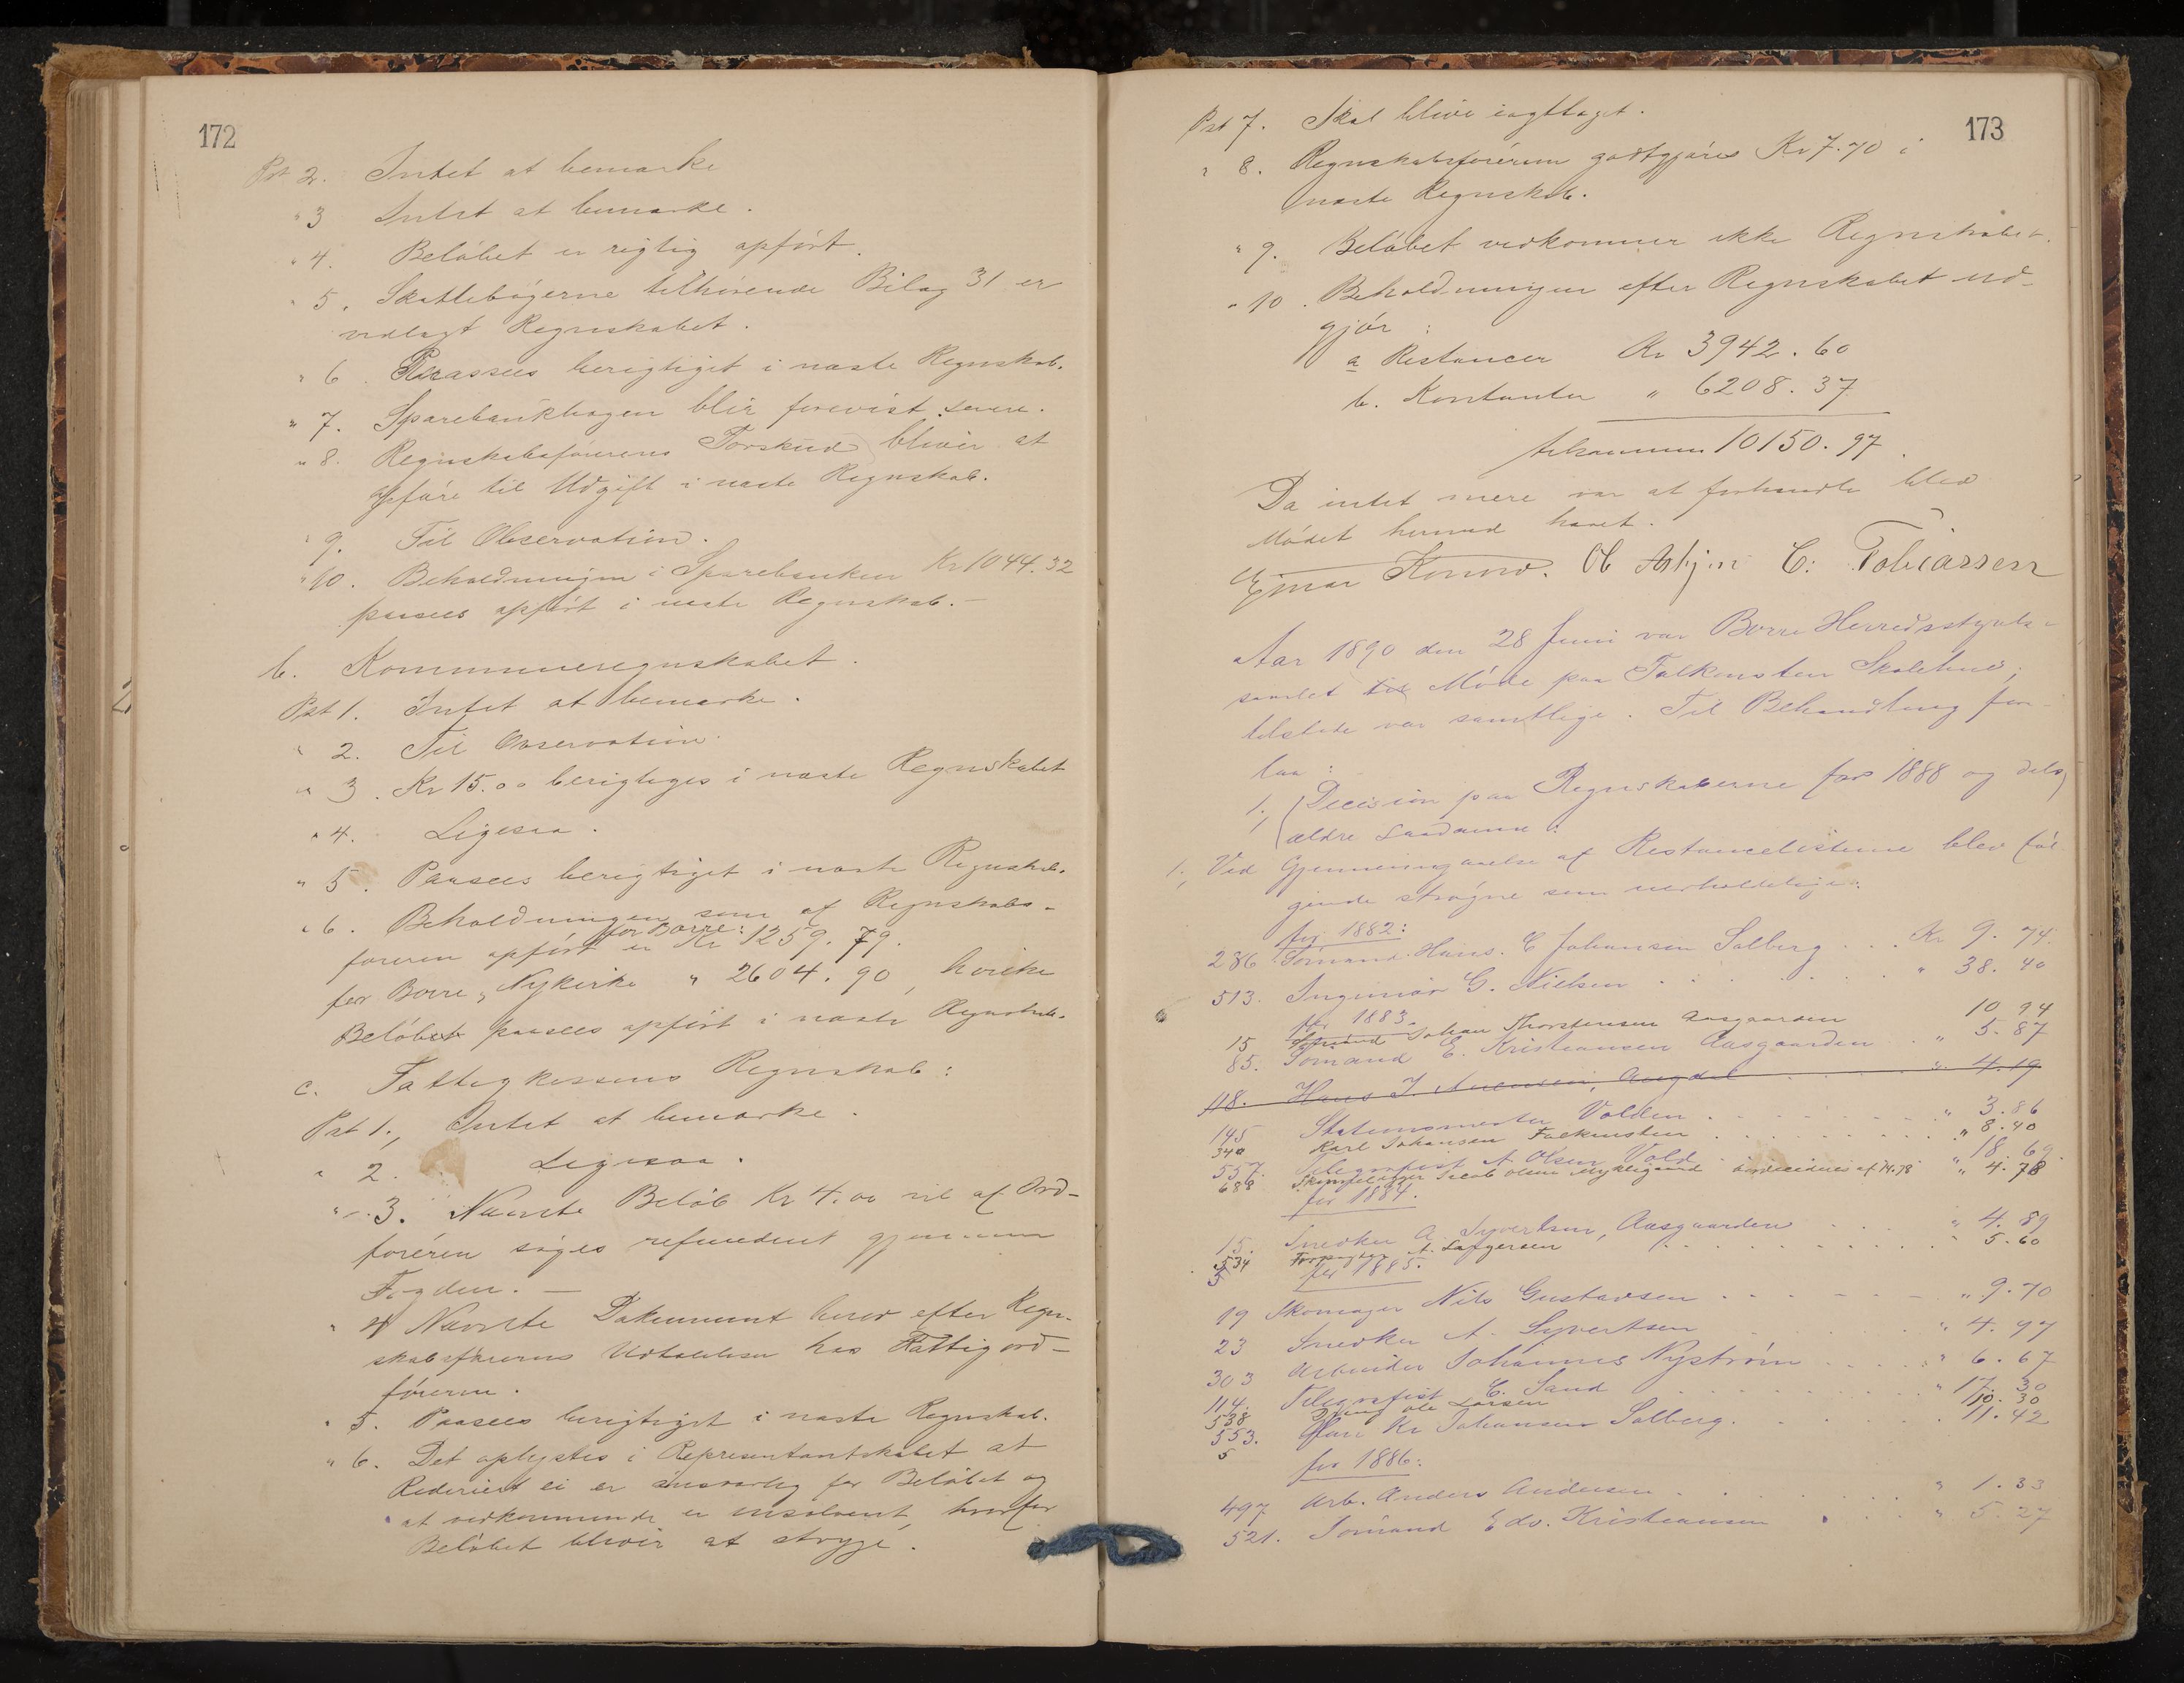 172
Pst 2. Intet at bemærke
" 3 Intet at bemærke.
" 4. Beløbet er rigtig opført.
" 5. Skattebøgerne tilhørende Bilag 31 er
vedlagt Regnskabet.
" 6. Paasees berigtiget i næste Regnskab.
" 7. Sparebankbogen blir forevist senere.
" 8. Regnskabsførerens Forskud bliver at
opføre til Udgift i næste Regnskab.
" 9. Til Observation.
" 10. Beholdningen i Sparebanken Kr 1044.32
paasees opført i næste Regnskab. —
b. Kommuneregnskabet.
Pst 1. Intet at bemærke.
" 2. Til Observation.
" 3. Kr 15.00 berigtiges i næste Regnskabet
" 4. Ligesaa.
" 5. Paasees berigtiget i næste Regnskab.
" 6. Beholdningen som af Regnskabs-
for Borre:
føreren opført er Kr 1259.79.
for Borre, Nykirke " 2604.90, hvilke
Beløbet paasees opført i næste Regnskab.
c. Fattigkassens Regnskab:
Pst 1., Intet at bemærke.
" 2. Ligesaa.
" 3. Nævnte Beløb Kr 4.00 vil af Ord-
føreren søges refunderet gjennem
Fogden. —
" 4 Nævnte Dokument beror efter Regn-
skabsførerens Udtalelser hos Fattigord-
føreren.
" 5. Paasees berigtiget i næste Regnskab.
" 6. Det oplystes i Repræsentantskabet at
Rederiet ei er ansvarlig for Beløbet og
at vedkommende er insolvent, hvorfor
Beløbet bliver at stryge.
173
Pst 7. Skal blive iagttaget.
" 8. Regnskabsføreren godtgjøres Kr 7.70 i
næste Regnskab.
" 9. Beløbet vedkommer ikke Regnskabet.
" 10. Beholdningen efter Regnskabet ud-
gjør:
a Restancer Kr 3942.60
b. Kontanter " 6208.37
tilsammen 10150.97.
Da intet mere var at forhandle blev
Mødet hermed hævet.
Ejnar Konow. O Asbjør C. Tobiassen
Aar 1890 den 28 Juni var Borre Herredsstyrelse
samlet til Møde paa Falkensten Skolehus;
tilstede var samtlige. Til Behandling fore-
laa:
1., Decision paa Regnskaberne for 1888 og dels
ældre saadanne:
1., Ved Gjennemgaaelse af Restancelisterne blev føl-
gende strøgne som uerholdelige:
for 1882:
286 Sømand Hans. C Johansen Solberg . . . Kr 9.74.
513. Ingeniør G. Nielsen . . . " 38.40
for 1883.
15 Sømand Johan Thorstensen Aasgaarden 10 94
85. Sømand E. Kristiansen Aasgaarden . " 5.87
118. Hans J. Aasgdel . . . " 4.19
145 Stationsmester Volden . . . " 3.86
340 Karl Johansen Falkensten . . . " 8.40
557. Telegrafist A Olsen Vold . . . " 18.69.
688 Jacob Olsen af 14.78 " 4.78
for 1884.
15. Snedker A. Syvertsen, Aasgaarden . . . " 4.89
534 A. . . . " 5.60
5 for 1885.
19 Skomager Nils Gustavsen . . . " 9.70
23 Snedker A. Syvertsen . . . " 4.97
303 Arbeider Johannes Nystrøm . . . " 6.67
114. Telegrafist C. Sand . . . " 17.30
538 Ole Larsen 10.30
553. Hans Kr Johansen Solberg. . . . 11.42
5 for 1886:
497 Arb. Anders Andersen . . . " 1.33
521. Sømand Edv. Kristiansen . . . " 5.27